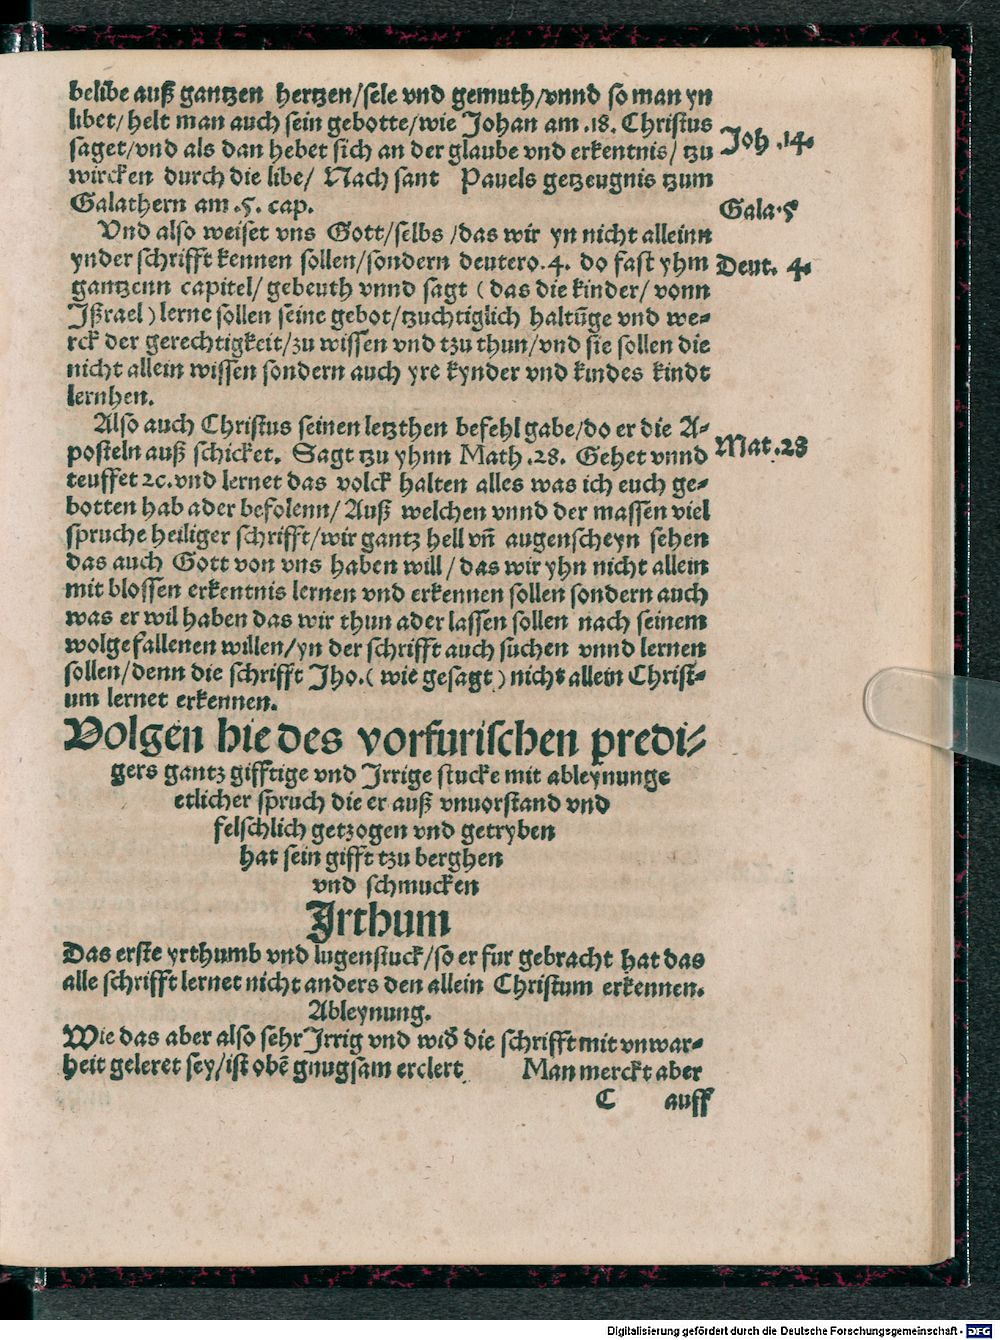 belibe auß gantzen hertzen/sele vnd gemuth/vnnd so man yn
libet/helt man auch sein gebotte/wie Johan am .18. Christus
saget/vnd als dan hebet sich an der glaube vnd erkentnis/ tzu
Joh .14.
wircken durch die libe/ Nach sant Pauels getzeugnis tzum
Galathern am .5. cap.
Gala.5
Vnd also weiset vns Gott/selbs /das wir yn nicht alleinn
ynder schrifft kennen sollen/sondern deutero.4. do fast yhm
Deut. 4.
gantzenn capitel/ gebeuth vnnd sagt ( das die kinder/ vonn
Jßrael ) lerne sollen seine gebot/tzuchtiglich haltūge vnd we-
rck der gerechtigkeit/zu wissen vnd tzu thun/vnd sie sollen die
nicht allein wissen sondern auch yre kynder vnd kindes kindt
lernhen.
Also auch Christus seinen letzthen befehl gabe/do er die A-
posteln auß schicket. Sagt tzu yhnn Math .28. Gehet vnnd
Mat.28
teuffet ꝛc.vnd lernet das volck halten alles was ich euch ge-
botten hab ader befolenn/ Auß welchen vnnd der massen viel
spruche heiliger schrifft/wir gantz hell vñ augenscheyn sehen
das auch Gott von vns haben will / das wir yhn nicht allein
mit blossen erkentnis lernen vnd erkennen sollen sondern auch
was er wil haben das wir thun ader lassen sollen nach seinem
wolgefallenen willen/yn der schrifft auch suchen vnnd lernen
sollen/denn die schrifft Jho.( wie gesagt ) nicht allein Christ-
um lernet erkennen.
Volgen hie des vorfurischen predi-
gers gantz gifftige vnd Jrrige stucke mit ableynunge
etlicher spruch die er auß vnuorstand vnd
felschlich getzogen vnd getryben
hat sein gifft tzu berghen
vnd schmucken
Jrthum
Das erste yrthumb vnd lugenstuck/so er fur gebracht hat das
alle schrifft lernet nicht anders den allein Christum erkennen.
Ableynung.
Wie das aber also sehr Jrrig vnd wid̄ die schrifft mit vnwar-
heit geleret sey/ist obē gnugsam erclert Man merckt aber
C auff
Digitalisierung gefördert durch die Deutsche Forschungsgemeinschaft - DFG